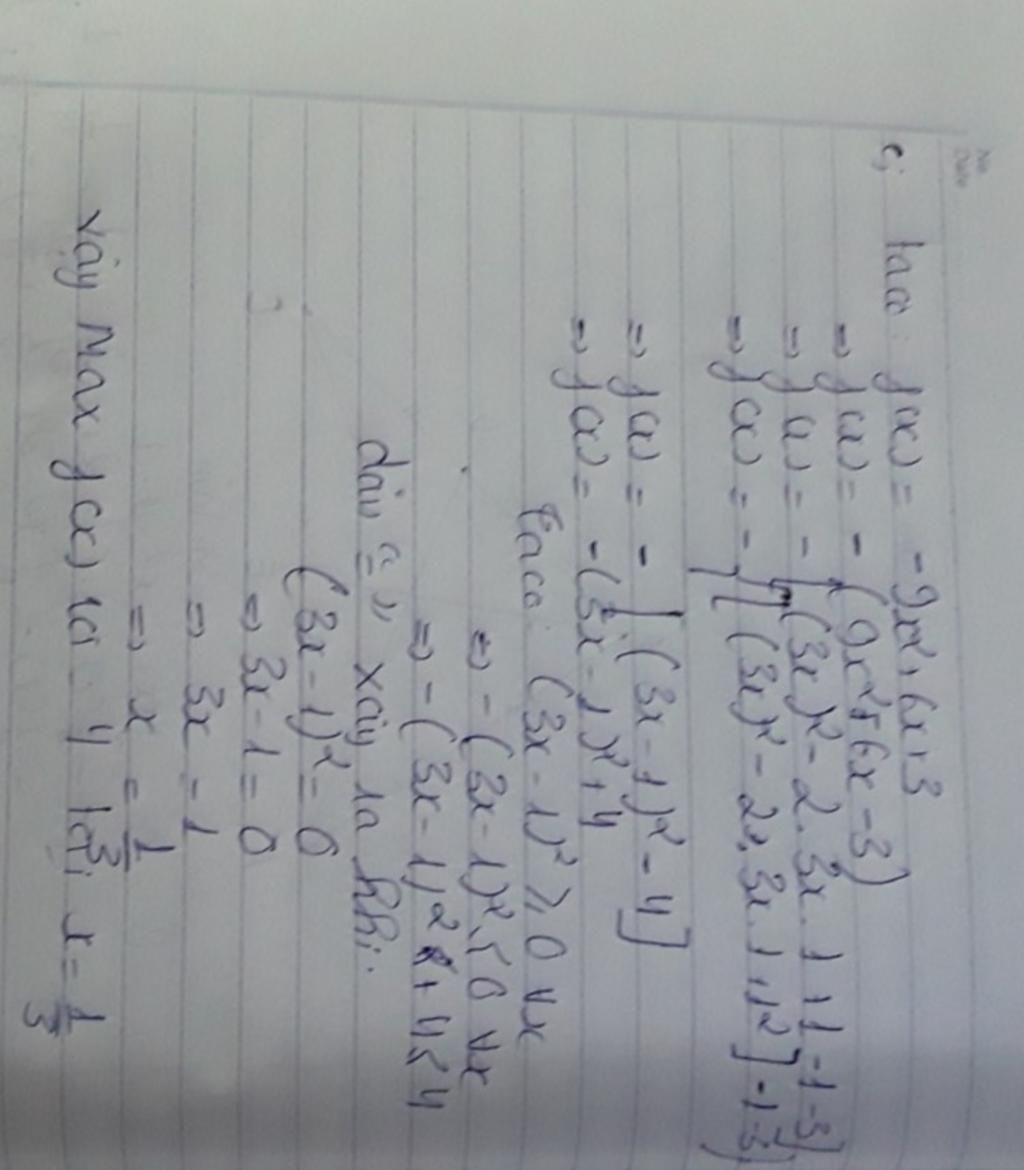 No
Date
c; ta có: f(x) = -9x² + 6x + 3
⇒ f(x) = - (9x² + 6x - 3)
⇒ f(x) = - [(3x)² - 2.3x.1 + 1 - 1 - 3]
⇒ f(x) = - {[(3x)² - 2.3x.1 + 1²] - 1 - 3}
⇒ f(x) = - [(3x - 1)² - 4]
⇒ f(x) = -(3x - 1)² + 4
ta có: (3x - 1)² ≥ 0 ∀x
⇒ - (3x - 1)² ≤ 0 ∀x
⇒ - (3x - 1)² + 4 ≤ 4
dấu "=" xảy ra khi:
(3x - 1)² = 0
⇒ 3x - 1 = 0
⇒ 3x = 1
⇒ x = 1/3
vậy Max f(x) là 4 tại x = 1/3